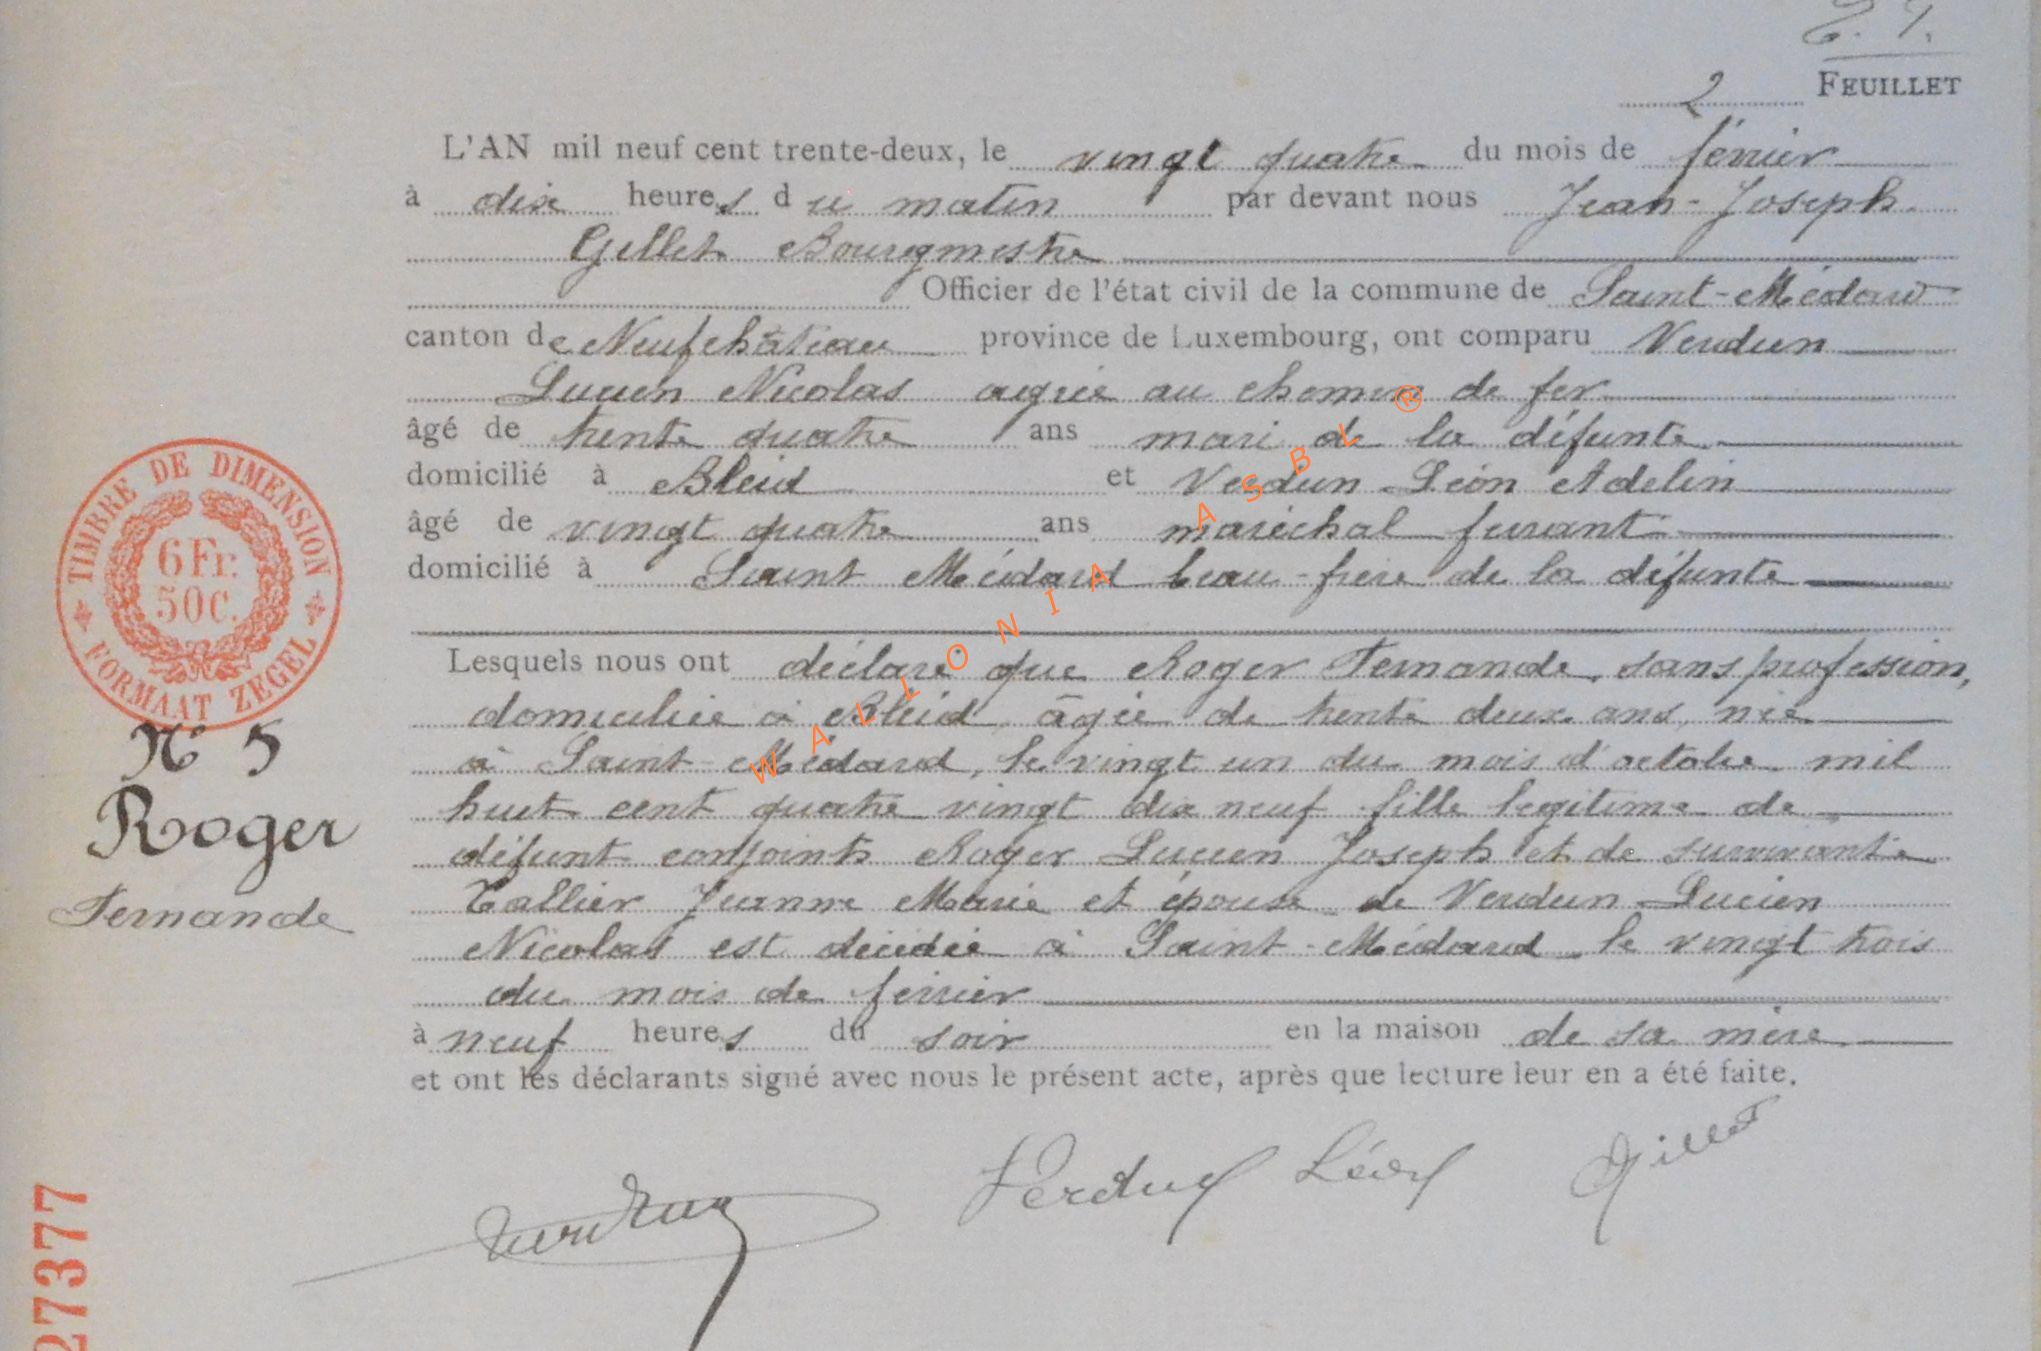 E. T.
2 FEUILLET
L'AN mil neuf cent trente-deux, le vingt quatre du mois de février
à dix heures du matin par devant nous Jean-Joseph
Gillet Bourgmestre
Officier de l'état civil de la commune de Saint-Médard
canton de Neufchâteau province de Luxembourg, ont comparu Verdun
Lucien Nicolas agréé au chemin de fer
âgé de trente quatre ans mari de la défunte
domicilié à Bleid et Verdun Léon Adelin
âgé de vingt quatre ans maréchal ferrant
domicilié à Saint Médard beau-frère de la défunte
Lesquels nous ont déclaré que Roger Fernande, sans profession,
domiciliée à Bleid, âgée de trente deux ans, née
à Saint-Médard, le vingt un du mois d'octobre mil
huit cent quatre vingt dix neuf fille légitime de
défunt conjoints Roger Lucien Joseph et de survivante
Tallier Jeanne Marie et épouse de Verdun Lucien
Nicolas est décédée à Saint-Médard le vingt trois
du mois de février
à neuf heures du soir en la maison de sa mère
et ont les déclarants signé avec nous le présent acte, après que lecture leur en a été faite.
Verdun Léon Gillet
TIMBRE DE DIMENSION
6Fr.
50C.
FORMAAT ZEGEL
N° 5
Roger
Fernande
27377
WALIONIA ASBL ®